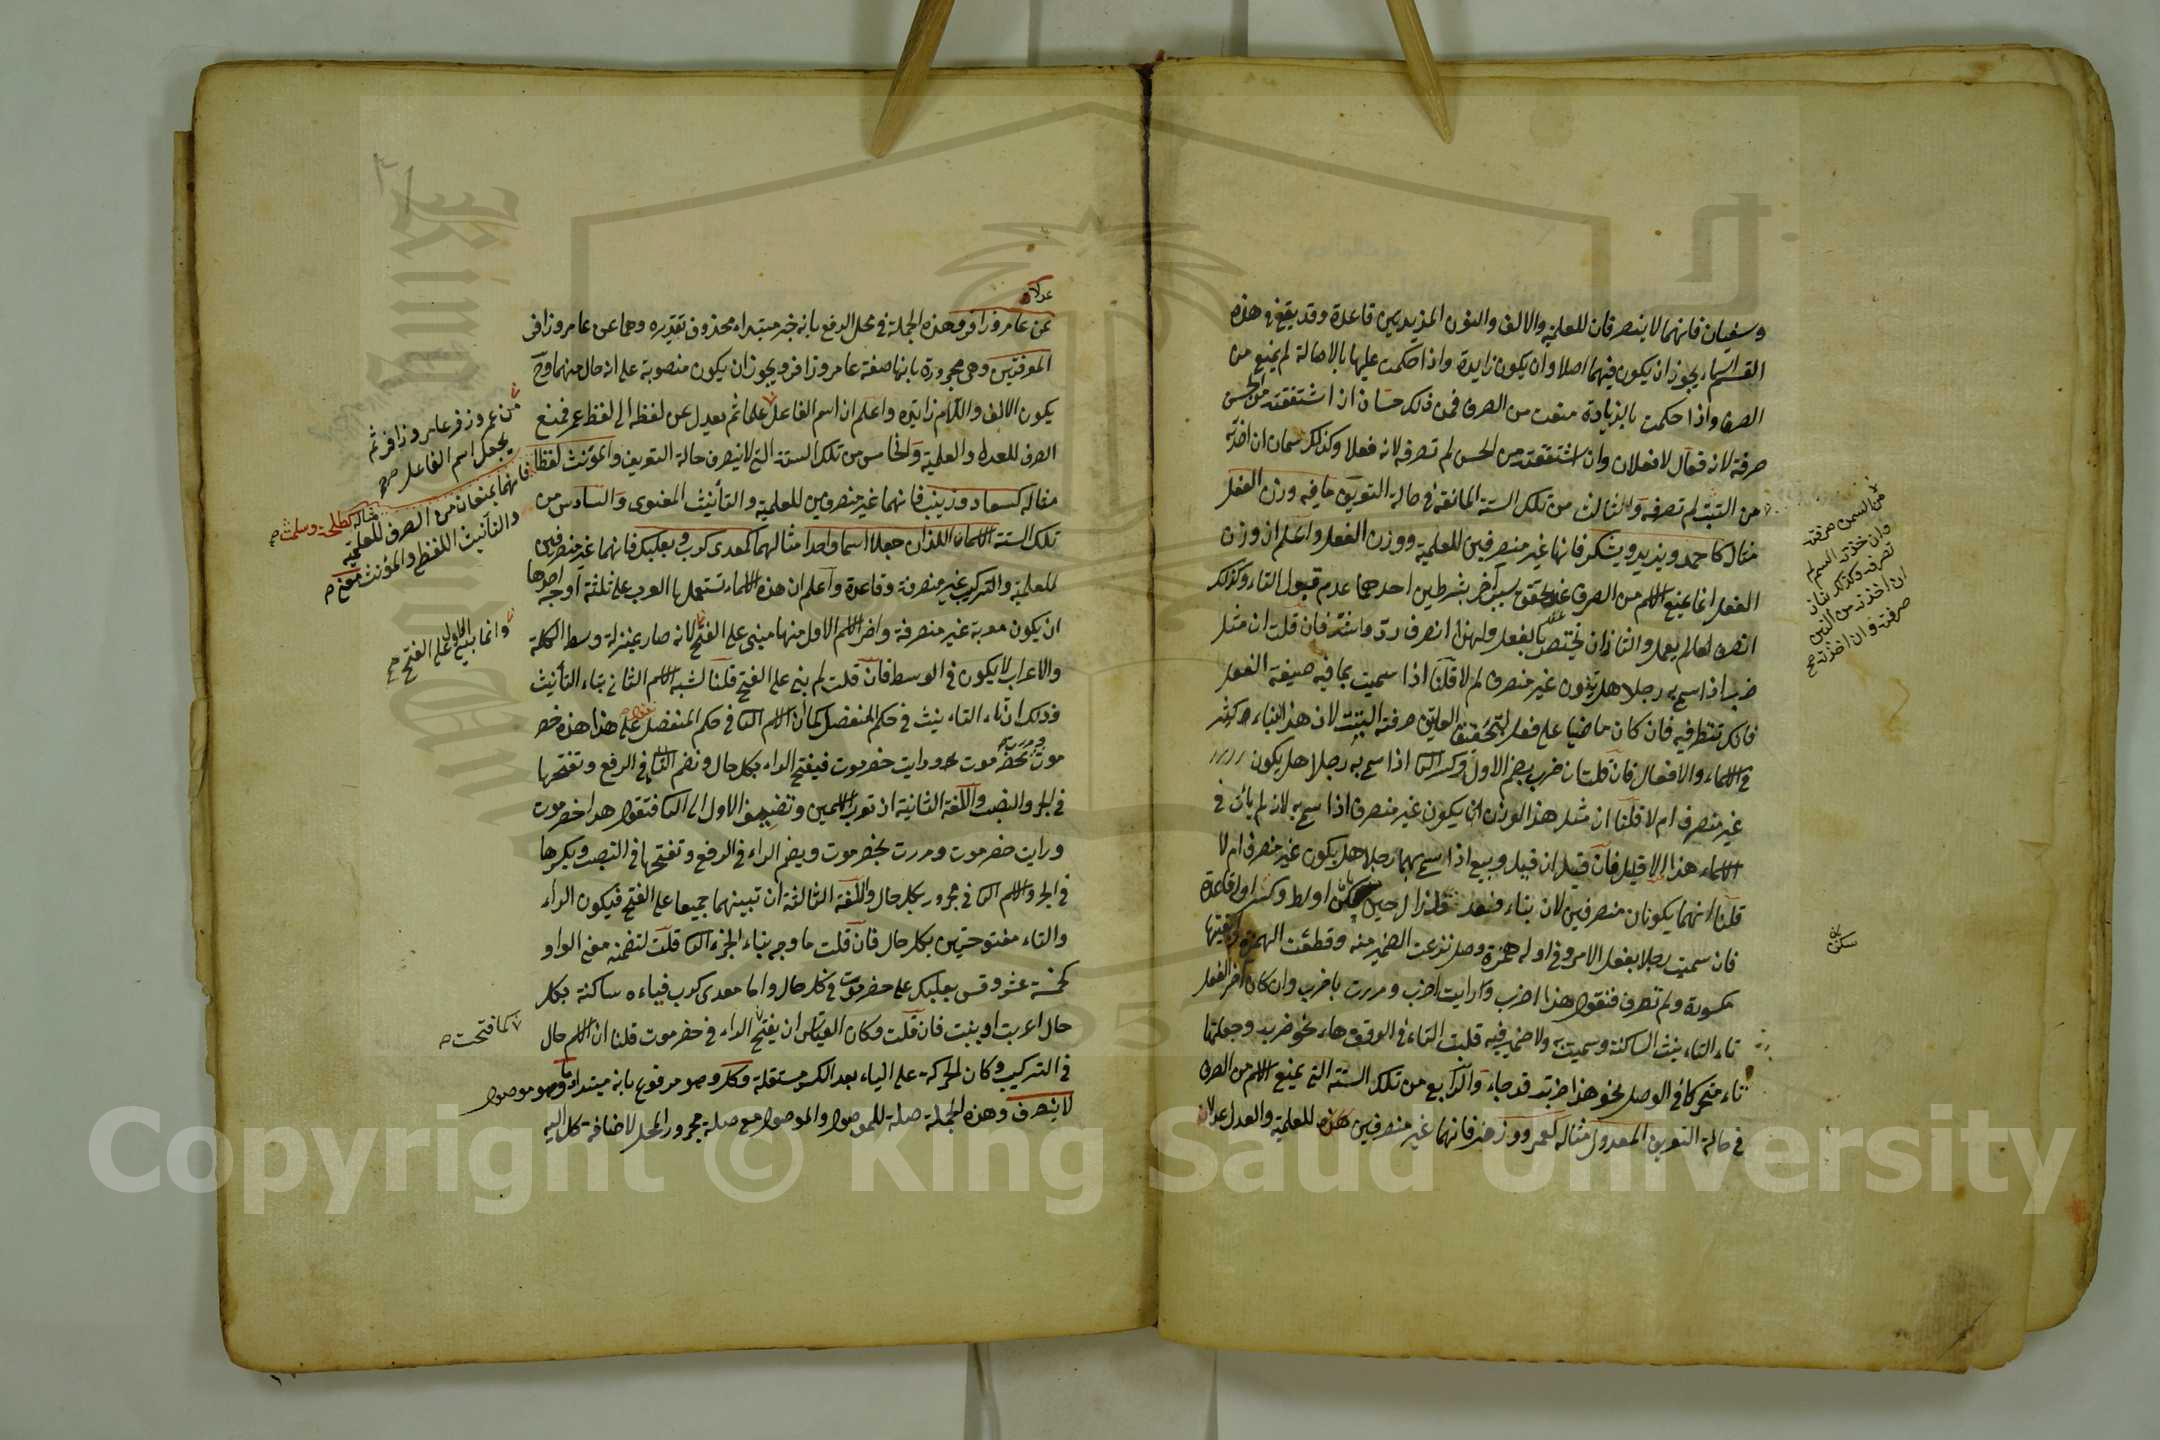 وسفيان فانهما لا ينصرفان للعلمية والالف والنون المزيدتين قاعدة وقد يقع في هذه
القسم اسماء يجوز ان يكون فيهما اصلا وان يكون زايدة واذا حكمت عليها بالاصالة لم يمنع من
الصرف واذا حكمت بالزيادة منعت من الصرف فمن ذلك حسان ان اشتققته من الحسن
صرفته لانه فعال لا فعلان وان اشتققته من الحس لم تصرفه لانه فعلا وكذلك سمان ان اخذته
من لم تصرفه والثالث من تلك الستة المانعة في حالة التعريف ما فيه وزن الفعل
مثال كاحمد ويزيد ويشكر فانها غير منصرفين للعلمية ووزن الفعل واعلم ان وزن
الفعل انما يمنع الاسم من الصرف بشرطين احدهما عدم قبول التاء وكذلك
انصرف يعمل والثاني ان يختص بالفعل ولهذا انصرف فان قلت ان مثل
ضرب اذا سمي به رجلا هل يكون غير منصرف ام لا قلنا اذا سميت بما فيه صيغة الفعل
فانك تنظر فيه فان كان ماضيا على فعل صرفته البتة لان هذا البناء كثير
في الاسماء والافعال فان قلت ان ضرب بضم الاول وكسر الثا اذا سمي به رجلا هل يكون
غير منصرف ام لا قلنا ان مثل هذا الوزن يكون غير منصرف اذا سمي به لانه لم يأت في
الاسماء هذا الا قليل فان قيل ان قيل وبيع اذا سمي بهما رجلا هل يكون غير منصرف ام لا
قلنا انهما يكونان منصرفين لان بناء فعل قد زال حين سكن اوسط وكسر اوله قاعدة
فان سميت رجلا بفعل الامر وفي اوله همزة وصل نزعت الضمير منه وقطعت الهمزة
مكسورة ولم تصرف فنقول هذا اضرب ورايت اضرب ومررت باضرب وان كان اخر الفعل
تاء التانيث الساكنة وسميت به ولا ضمير فيه قلبت التاء في الوقف هاء نحو ضربه وجعلتها
تاء متحركا في الوصل نحو هذا ضربة قد جاء والرابع من تلك الستة التي يمنع الاسم من الصرف
في حالة التعريف المعدول مثاله كعمر وزفر فانهما غير منصرفين للعلمية والعدل عدلا
من السمن صرفته
وان اخذته السم لم
تصرفه وكذلك
ان اخذته من التبن
صرفته وان اخذته صح
سكن
عدلا
عن عامر وزافر وهذه الجملة في محل الرفع بانه خبر مبتداء محذوف تقديره وهما عن عامر وزافر
المعرفتين وهي مجرورة بانها صفة عامر وزافر ويجوز ان يكون منصوبة على انه حال منهما
يكون الالف واللام زايدة واعلم ان اسم الفاعل علما ثم يعدل عن لفظه الى لفظ عمر فمنع
الصرف للعدل والعلمية والخامس من تلك الستة التي لا ينصرف حالة التعريف والمؤنث لفظا
مثاله كسعاد وزينب فانهما غير منصرفين للعلمية والتأنيث المعنوى والسادس من
تلك الستة الاسمان اللذان جعلا اسما واحدا مثالهما كمعدى كرب وبعلبك فانهما غير منصرفين
للعلمية والتركيب غير منصرفة وقاعدة واعلم ان هذه الاسماء تستعملها العرب على ثلثة اوجه احدها
ان يكون معربة غير منصرفة واخر الاسم الاول منها مبني على الفتح لانه صار بمنزلة وسط الكلمة
والاعراب لا يكون في الوسط فان قلت لم بني على الفتح قلنا لشبه الاسم الثاني بتاء التأنيث
فذلك ان تاء التاء نيث في حكم المنفصل كما ان الاسم الثا في حكم المنفصل فعلى هذا هذه حضر
موت حضر موت ورايت حضرموت فيفتح الراء بكل حال ونضم التاء في الرفع ونفتحها
في الجر والنصب واللغة الثانية ان تعرب الاسمين وتضيف الاول الى الثا فتقول هذا حضرموت
ورايت حضرموت ومررت بحضرموت ويضم الراء في الرفع وتفتحها في النصب ويكسرها
في الجر والاسم الثا في مجرور بكل حال واللغة الثالثة ان تبنيهما جميعا على الفتح فيكون الراء
والتاء مفتوحتين بكل حال فان قلت ما وجه بناء الجزء الثا قلت لتضمنه معنى الواو
كخمسة عشر وقس بعلبك على حضرموت في كل حال واما معدى كرب فياءه ساكنة بكل
حال اعربت او بنيت فان قلت وكان القياس ان يفتح الراء في حضرموت قلنا ان الاسم حال
في التركيب وكان الحركة على الياء بعد الكسر مستقلة وكل وهو مرفوع بانه مبتداء وهو موصول
لا ينصرف وهذه الجملة صلة للموصول والموصول مع صلة مجرور المحل لاضافة كل اليه
من عمر وزفر عامر وزافر ثم
يجعل اسم الفاعل صح
مثاله كطلحة وسلمة
فانهما يمنعان من الصرف للعلمية
والتأنيث اللفظ والمؤنث معنى م
وانما بني الاول على الفتح صح
كما فتحت م